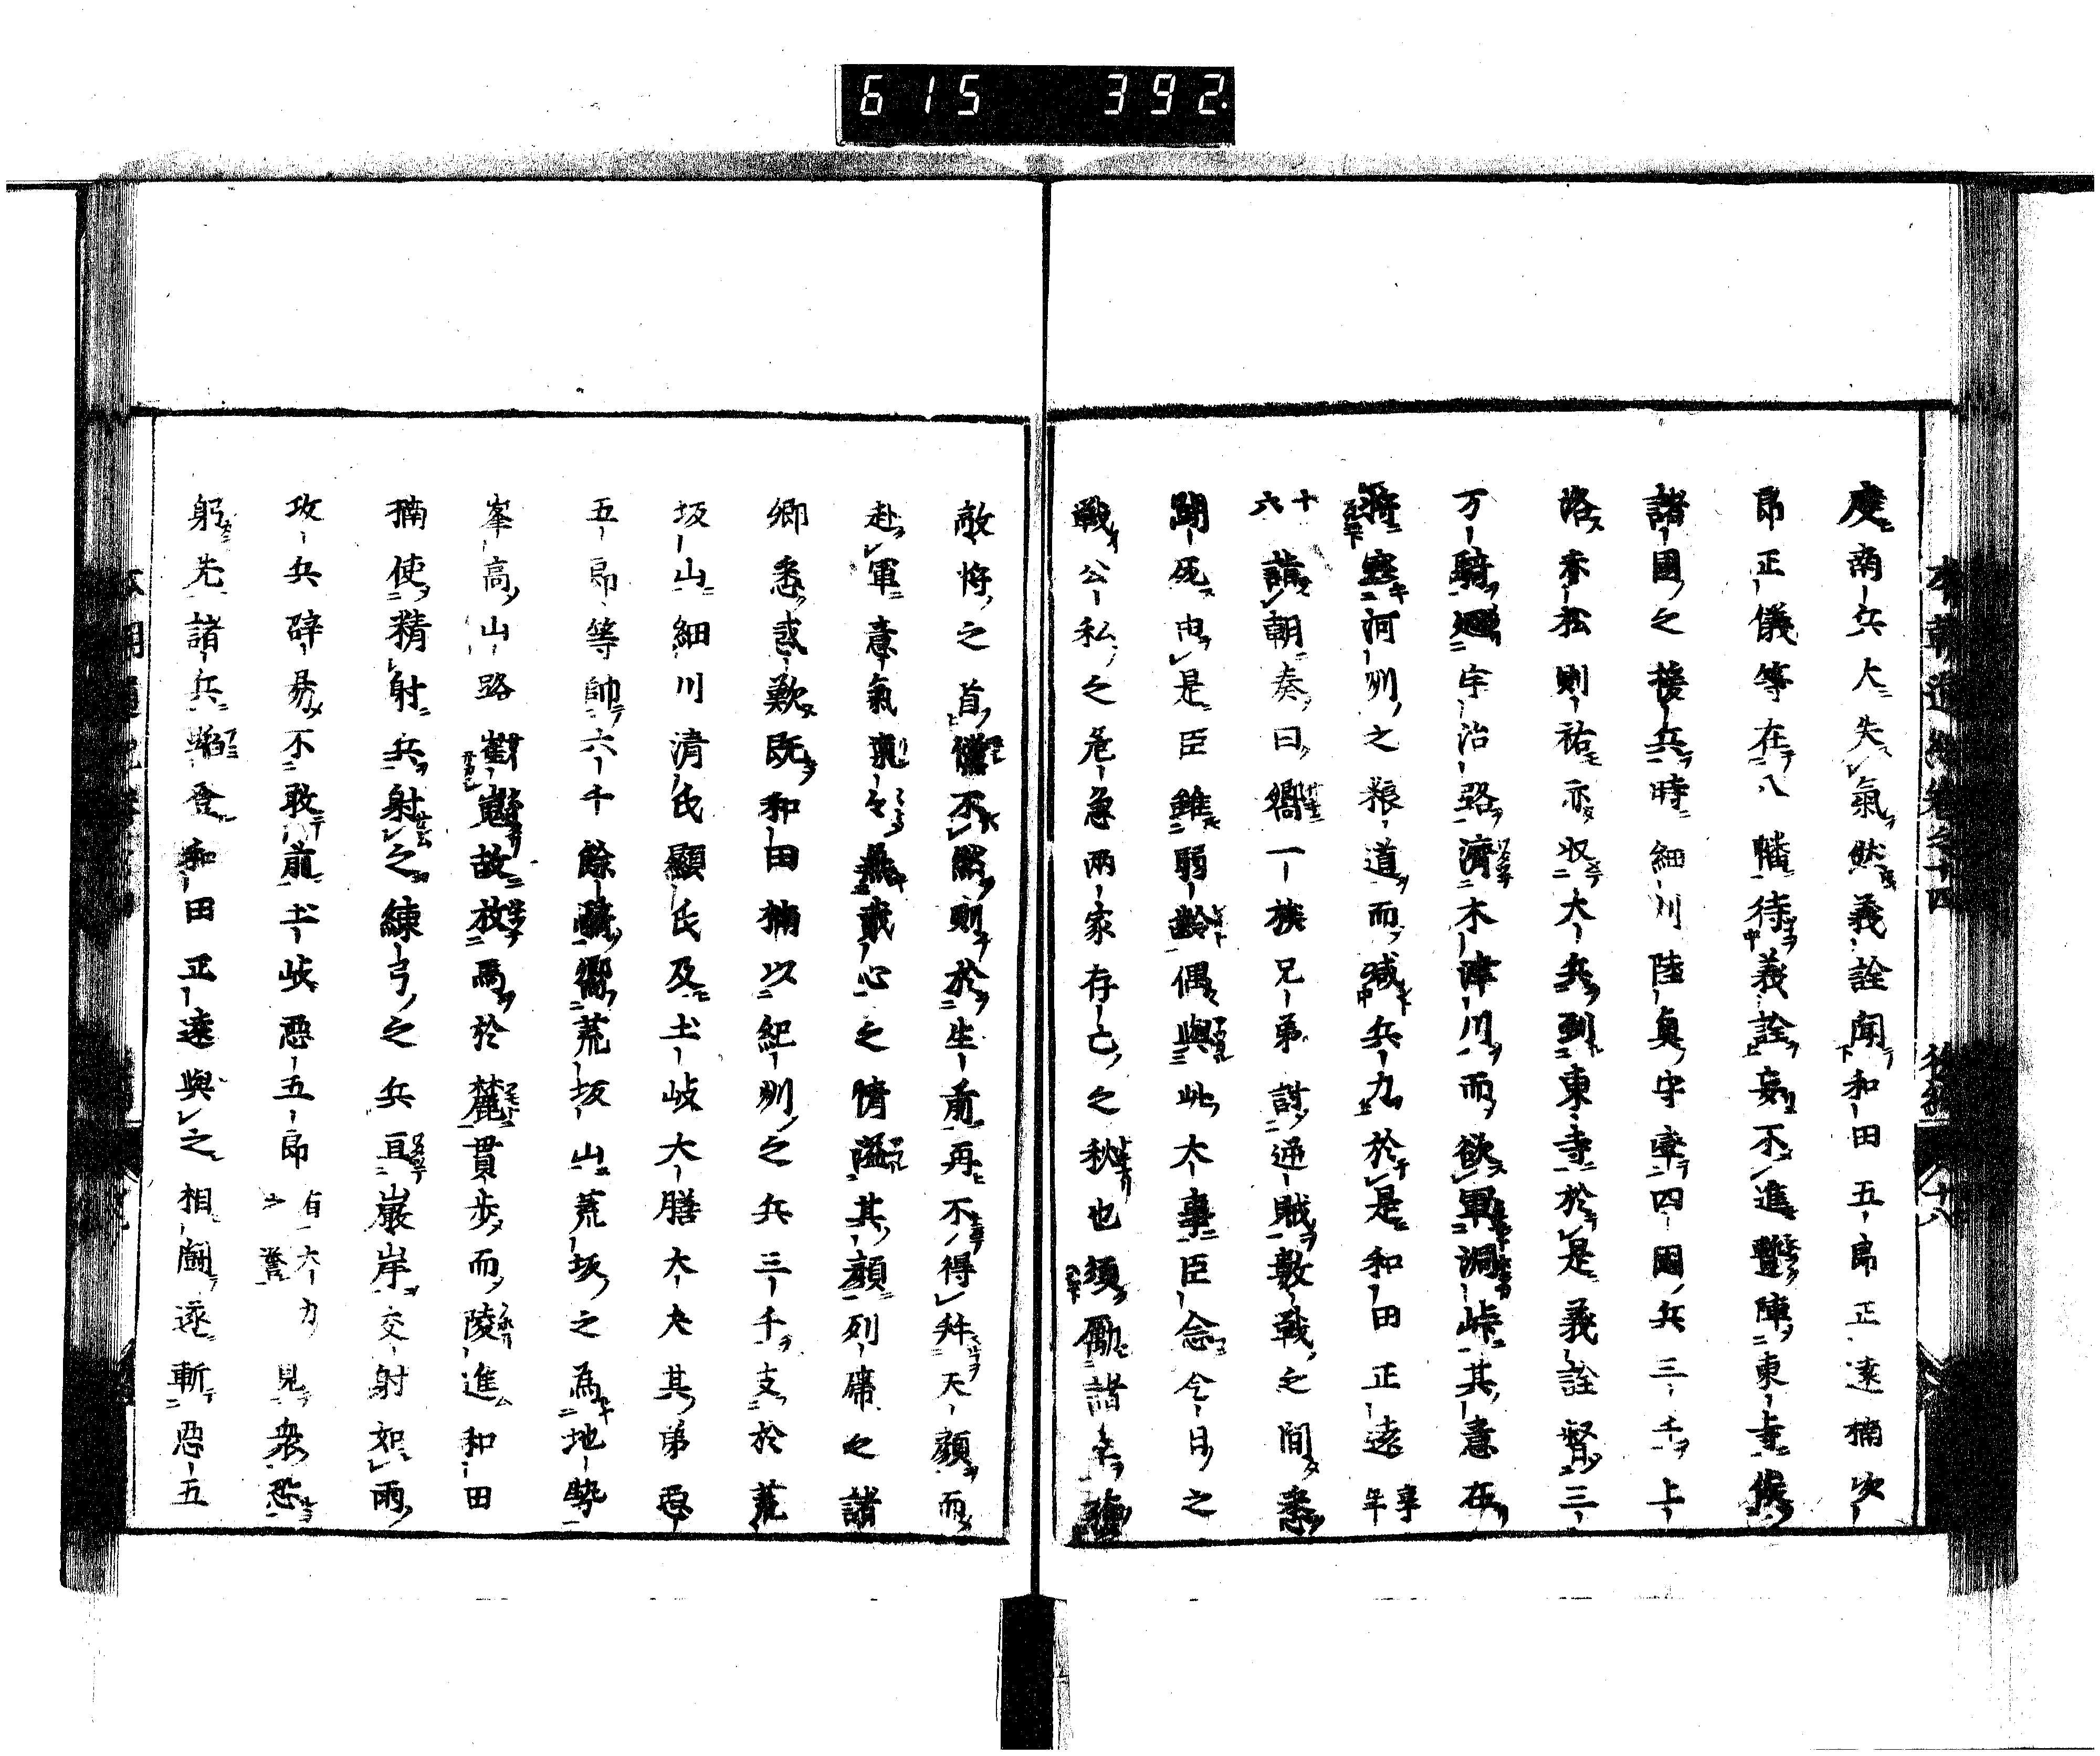 615 392
本朝通紀卷之十四 後編 十八
慶南兵大失氣然義詮聞和田五郎正遠楠次
郎正儀等在八幡待義詮妄不進豎陣東寺俟
諸國之援兵時細川陸奥守率四國兵三千上
洛赤松則祐亦收大兵到東寺於是義詮督三
万騎廻宇治路濟木津川而欲軍洞峠其意在
將塞河州之粮道而減兵九於是和田正遠年
十六 詣朝奏曰臣一族兄弟討逆賊數戰之間悉
鬪死也是臣雖弱齡偶與此大事臣念今日之
戰公私之危急兩家存亡之秋也須勵諸卒
敵將之首儻不然則於生前再不得拜天顔而
赴軍意氣凛々無貳心之情溢其顔列席之諸
卿悉惑歎既和田楠以紀州之兵三千支於荒
坂山細川清氏顯氏及土岐大膳大夫其弟惡
五郎等帥六千餘騎嚮荒坂山荒坂之為地勢
峯高山路嶄嵬故放馬於麓貫歩而陵進和田
楠使精射兵射之練弓之兵亘巖岸交射如雨
攻兵辟易不敢前土岐惡五郎有大力之譽見衆恐
躬先諸兵蹈登和田正遠與之相鬪遂斬惡五